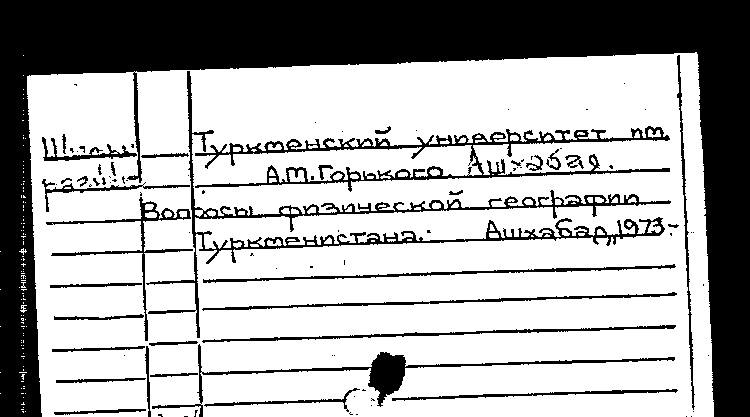 Туркменский университет им.
А.М.Горького. Ашхабад.
Вопросы физической географии
Туркменистана. Ашхабад, 1973-